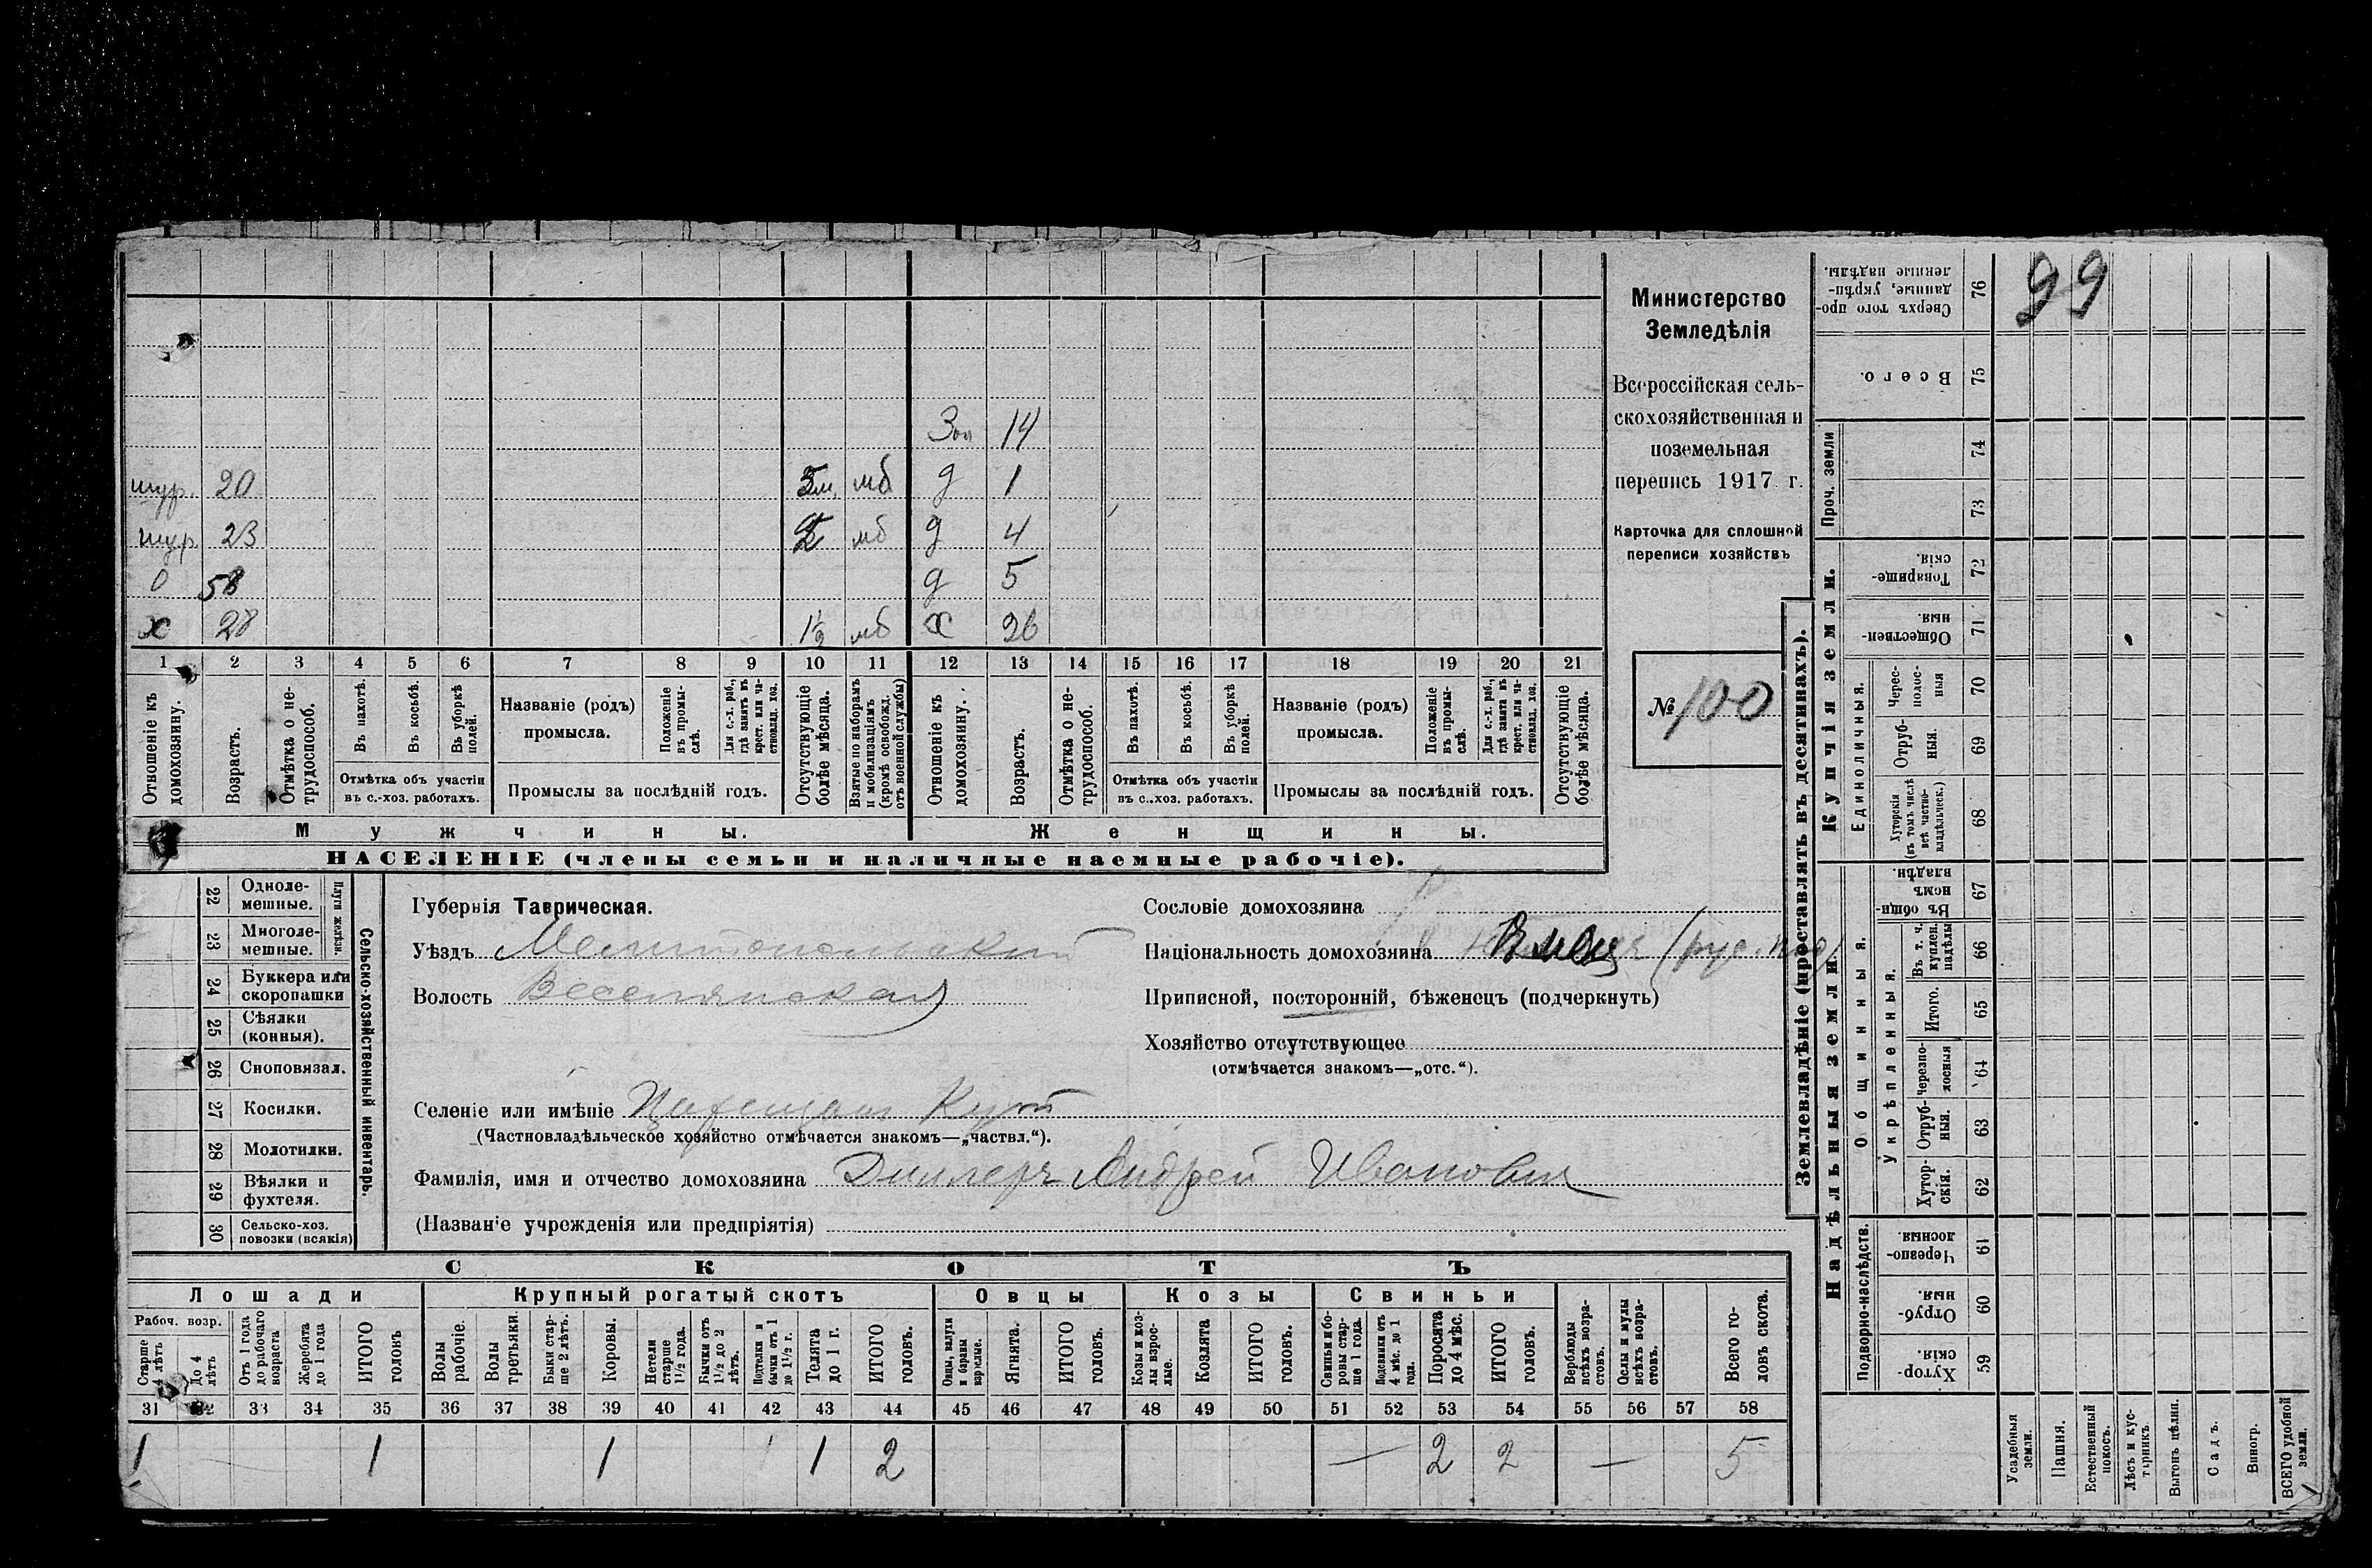 Зол 14
шур. 20 3м. мб д 1
шур. 23 2 мб д 4
О 58 д 5
х 28 1½ мб х 26
1 2 3 4 5 6 7 8 9 10 11 12 13 14 15 16 17 18 19 20 21
Отношеніе къ домохозяину.
Возрастъ.
Отмѣтка о нетрудоспособ.
Въ пахотѣ.
Въ косьбѣ.
Въ уборкѣ полей.
Отмѣтка объ участіи въ с.-хоз. работахъ.
Названіе (родъ) промысла.
Положеніе въ промыслѣ.
Для с.-х. раб., гдѣ занятъ въ крест. или частновлад. хоз.
Промыслы за послѣдній годъ.
Отсутствующіе болѣе мѣсяца.
Взятые по наборамъ и мобилизаціямъ (кромѣ освобожд. отъ военной службы)
Отношеніе къ домохозяину.
Возрастъ.
Отмѣтка о нетрудоспособ.
Въ пахотѣ.
Въ косьбѣ.
Въ уборкѣ полей.
Отмѣтка объ участіи въ с.-хоз. работахъ.
Названіе (родъ) промысла.
Положеніе въ промыслѣ.
Для с.-х. раб., гдѣ занята въ крест. или частновлад. хоз.
Промыслы за послѣдній годъ.
Отсутствующіе болѣе мѣсяца.
Мужчины. Женщины.
НАСЕЛЕНІЕ (члены семьи и наличные наемные рабочіе).
Министерство
Земледѣлія
Всероссійская сель-
скохозяйственная и
поземельная
перепись 1917 г.
Карточка для сплошной
переписи хозяйствъ
№ 100
22 Однолемешные.
23 Многолемешные.
Плуги желѣзн.
24 Буккера или скоропашки
25 Сѣялки (конныя).
26 Сноповязал.
27 Косилки.
28 Молотилки.
29 Вѣялки и фухтеля.
30 Сельско-хоз. повозки (всякія)
Сельско-хозяйственный инвентарь.
Губернія Таврическая.
Уѣздъ Мелитопольский
Волость Веселянская
Селеніе или имѣніе Кут
(Частновладѣльческое хозяйство отмѣчается знакомъ—„частвл.“).
Фамилія, имя и отчество домохозяина Андрей Иванович
(Названіе учрежденія или предпріятія)
Сословіе домохозяина
Національность домохозяина
Приписной, посторонній, бѣженецъ (подчеркнуть)
Хозяйство отсутствующее
(отмѣчается знакомъ—„отс.“).
СКОТЪ
Лошади Крупный рогатый скотъ Овцы Козы Свиньи
Рабоч. возр.
Старше 4 лѣтъ
До 4 лѣтъ
Отъ 1 года до рабочаго возраста
Жеребята до 1 года
ИТОГО головъ
Волы рабочіе.
Волы третьяки.
Быки старше 2 лѣтъ.
Коровы.
Нетели старше 1½ года.
Бычки отъ 1½ до 2 лѣтъ.
Подтелки и бычки отъ 1 до 1½ г.
Телята до 1 г.
ИТОГО головъ.
Овцы, валухи и бараны взрослые.
Ягнята.
ИТОГО головъ.
Козы и козлы взрослые.
Козлята
ИТОГО головъ.
Свиньи и боровы старше 1 года.
Подсвинки отъ 4 мѣс. до 1 года.
Поросята до 4 мѣс.
ИТОГО головъ.
Верблюды всѣхъ возрастовъ.
Ослы и мулы всѣхъ возрастовъ.
Всего головъ скота.
31 32 33 34 35 36 37 38 39 40 41 42 43 44 45 46 47 48 49 50 51 52 53 54 55 56 57 58
1 1 1 1 2 — 2 2 — 5
Землевладѣніе (проставлять въ десятинахъ).
Купчія земли.
Надѣльныя земли.
99
Сверхъ того проданные, укрѣпленные надѣлы. 76
Всего. 75
Проч. земли 74 73
Товарищескія. 72
Общественныя. 71
Единоличныя.
Чересполосныя 70
Отрубныя. 69
Хуторскія (въ томъ числѣ всѣ частновладѣльческ.) 68
Общинныя.
Въ общинномъ владѣн. 67
Укрѣпленныя.
Въ т. ч. куплен. надѣлы 66
Итого. 65
Черезполосныя 64
Отрубныя. 63
Хуторскія. 62
Подворно-наслѣдств.
Черезполосныя. 61
Отрубныя. 60
Хуторскія. 59
Усадебныя земли.
Пашня.
Естественный покосъ.
Лѣсъ и кустарникъ.
Выгонъ цѣлин.
Садъ.
Виногр.
ВСЕГО удобной земли.